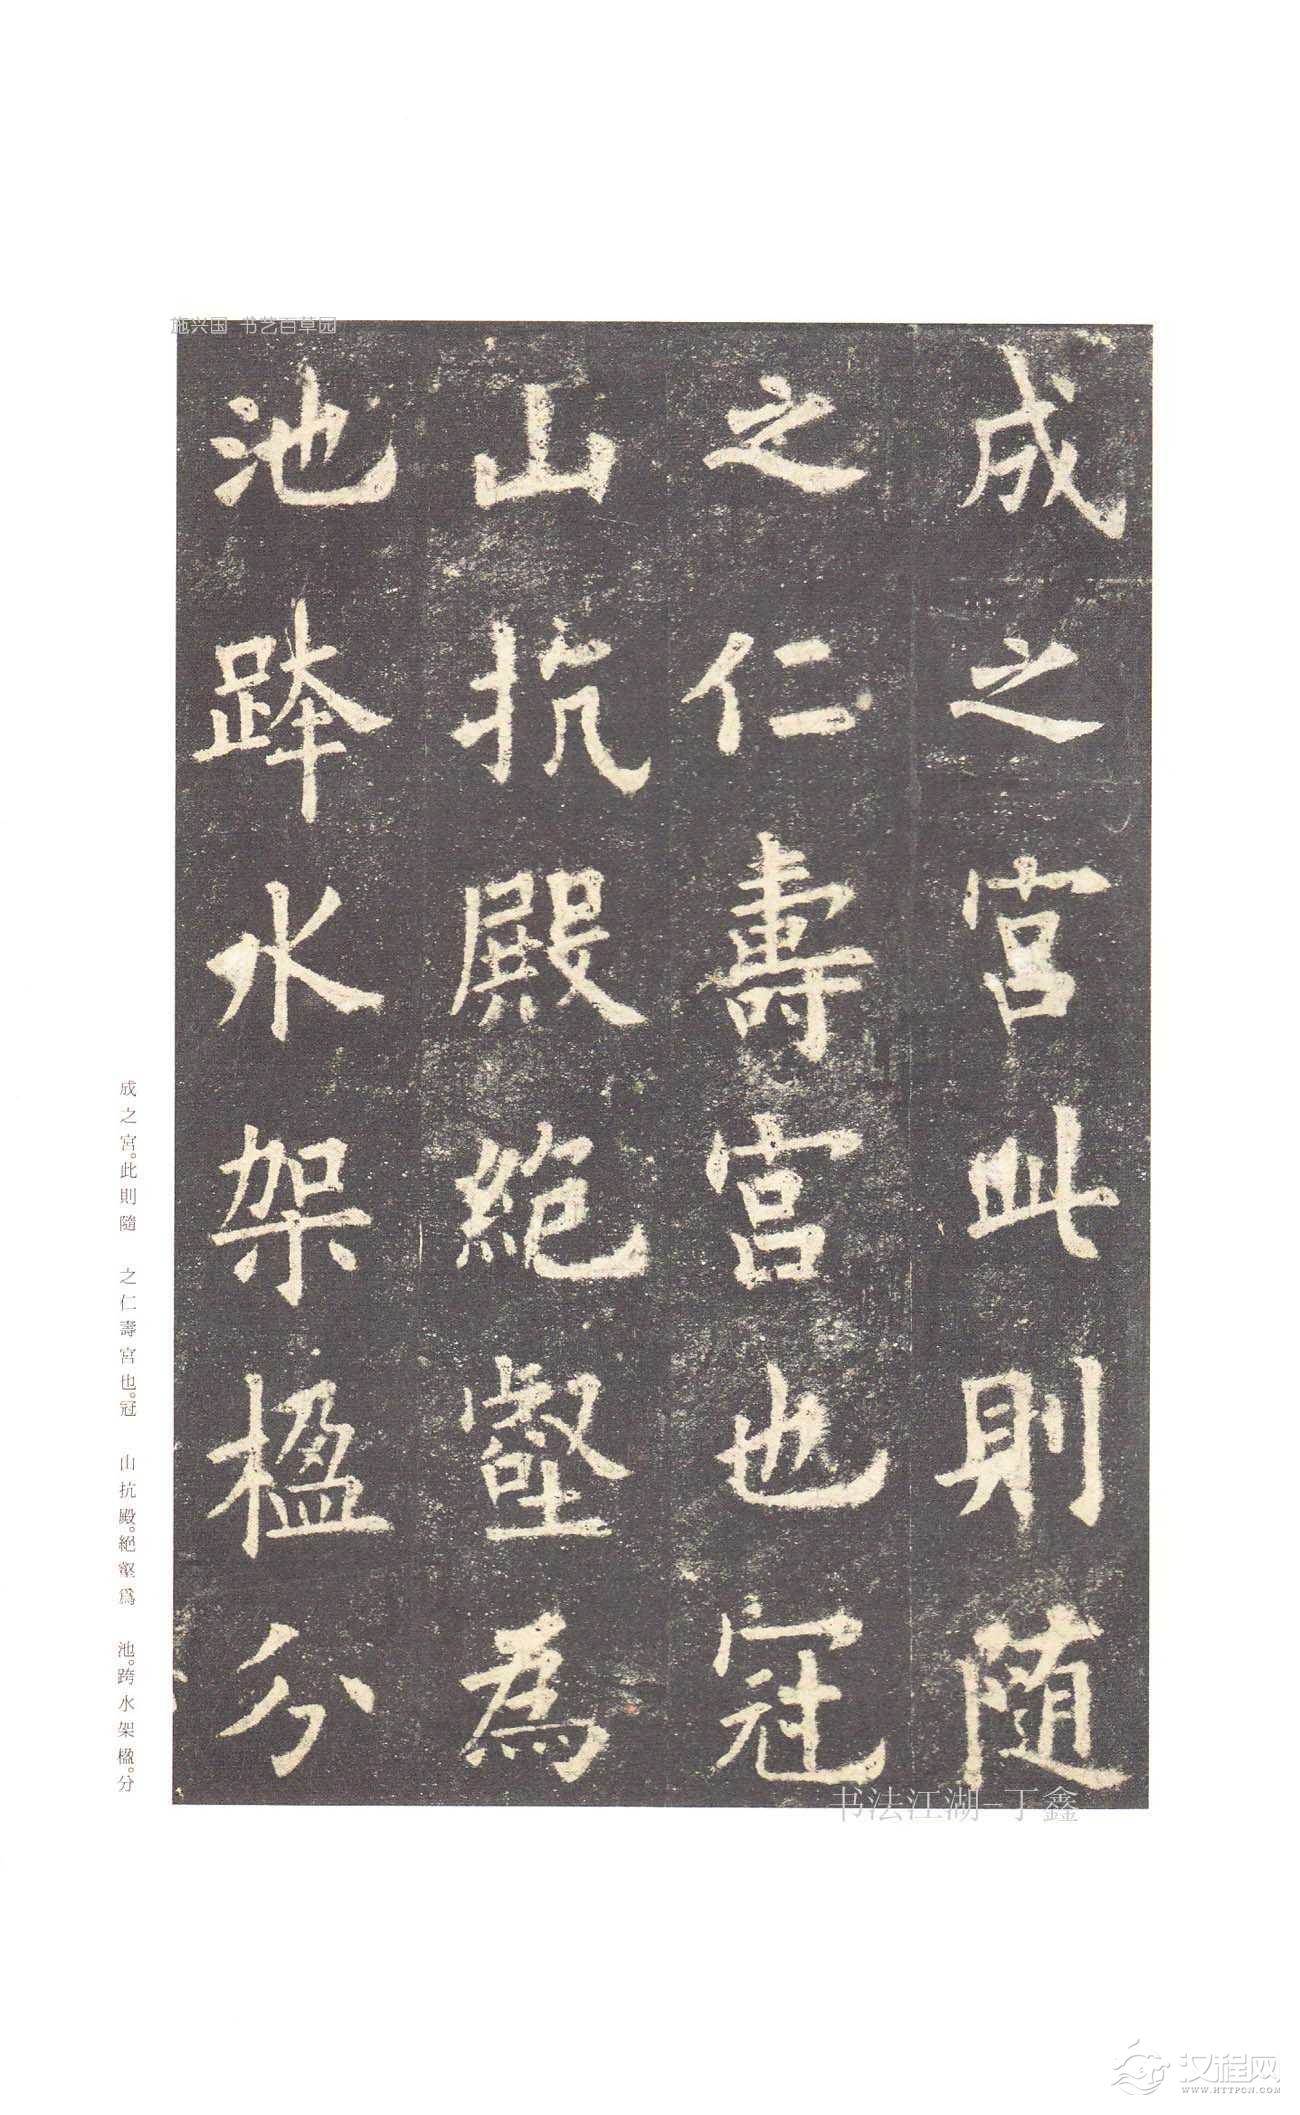 施兴国 书艺百草园
成之宫此則随
之仁壽宫也冠
山抗殿絶壑為
池跨水架楹分
成之宮。此則隨 之仁壽宮也。冠 山抗殿。絕壑爲 池。跨水架楹。分
书法江湖-丁鑫
汉程网
WWW.HTTPCN.COM